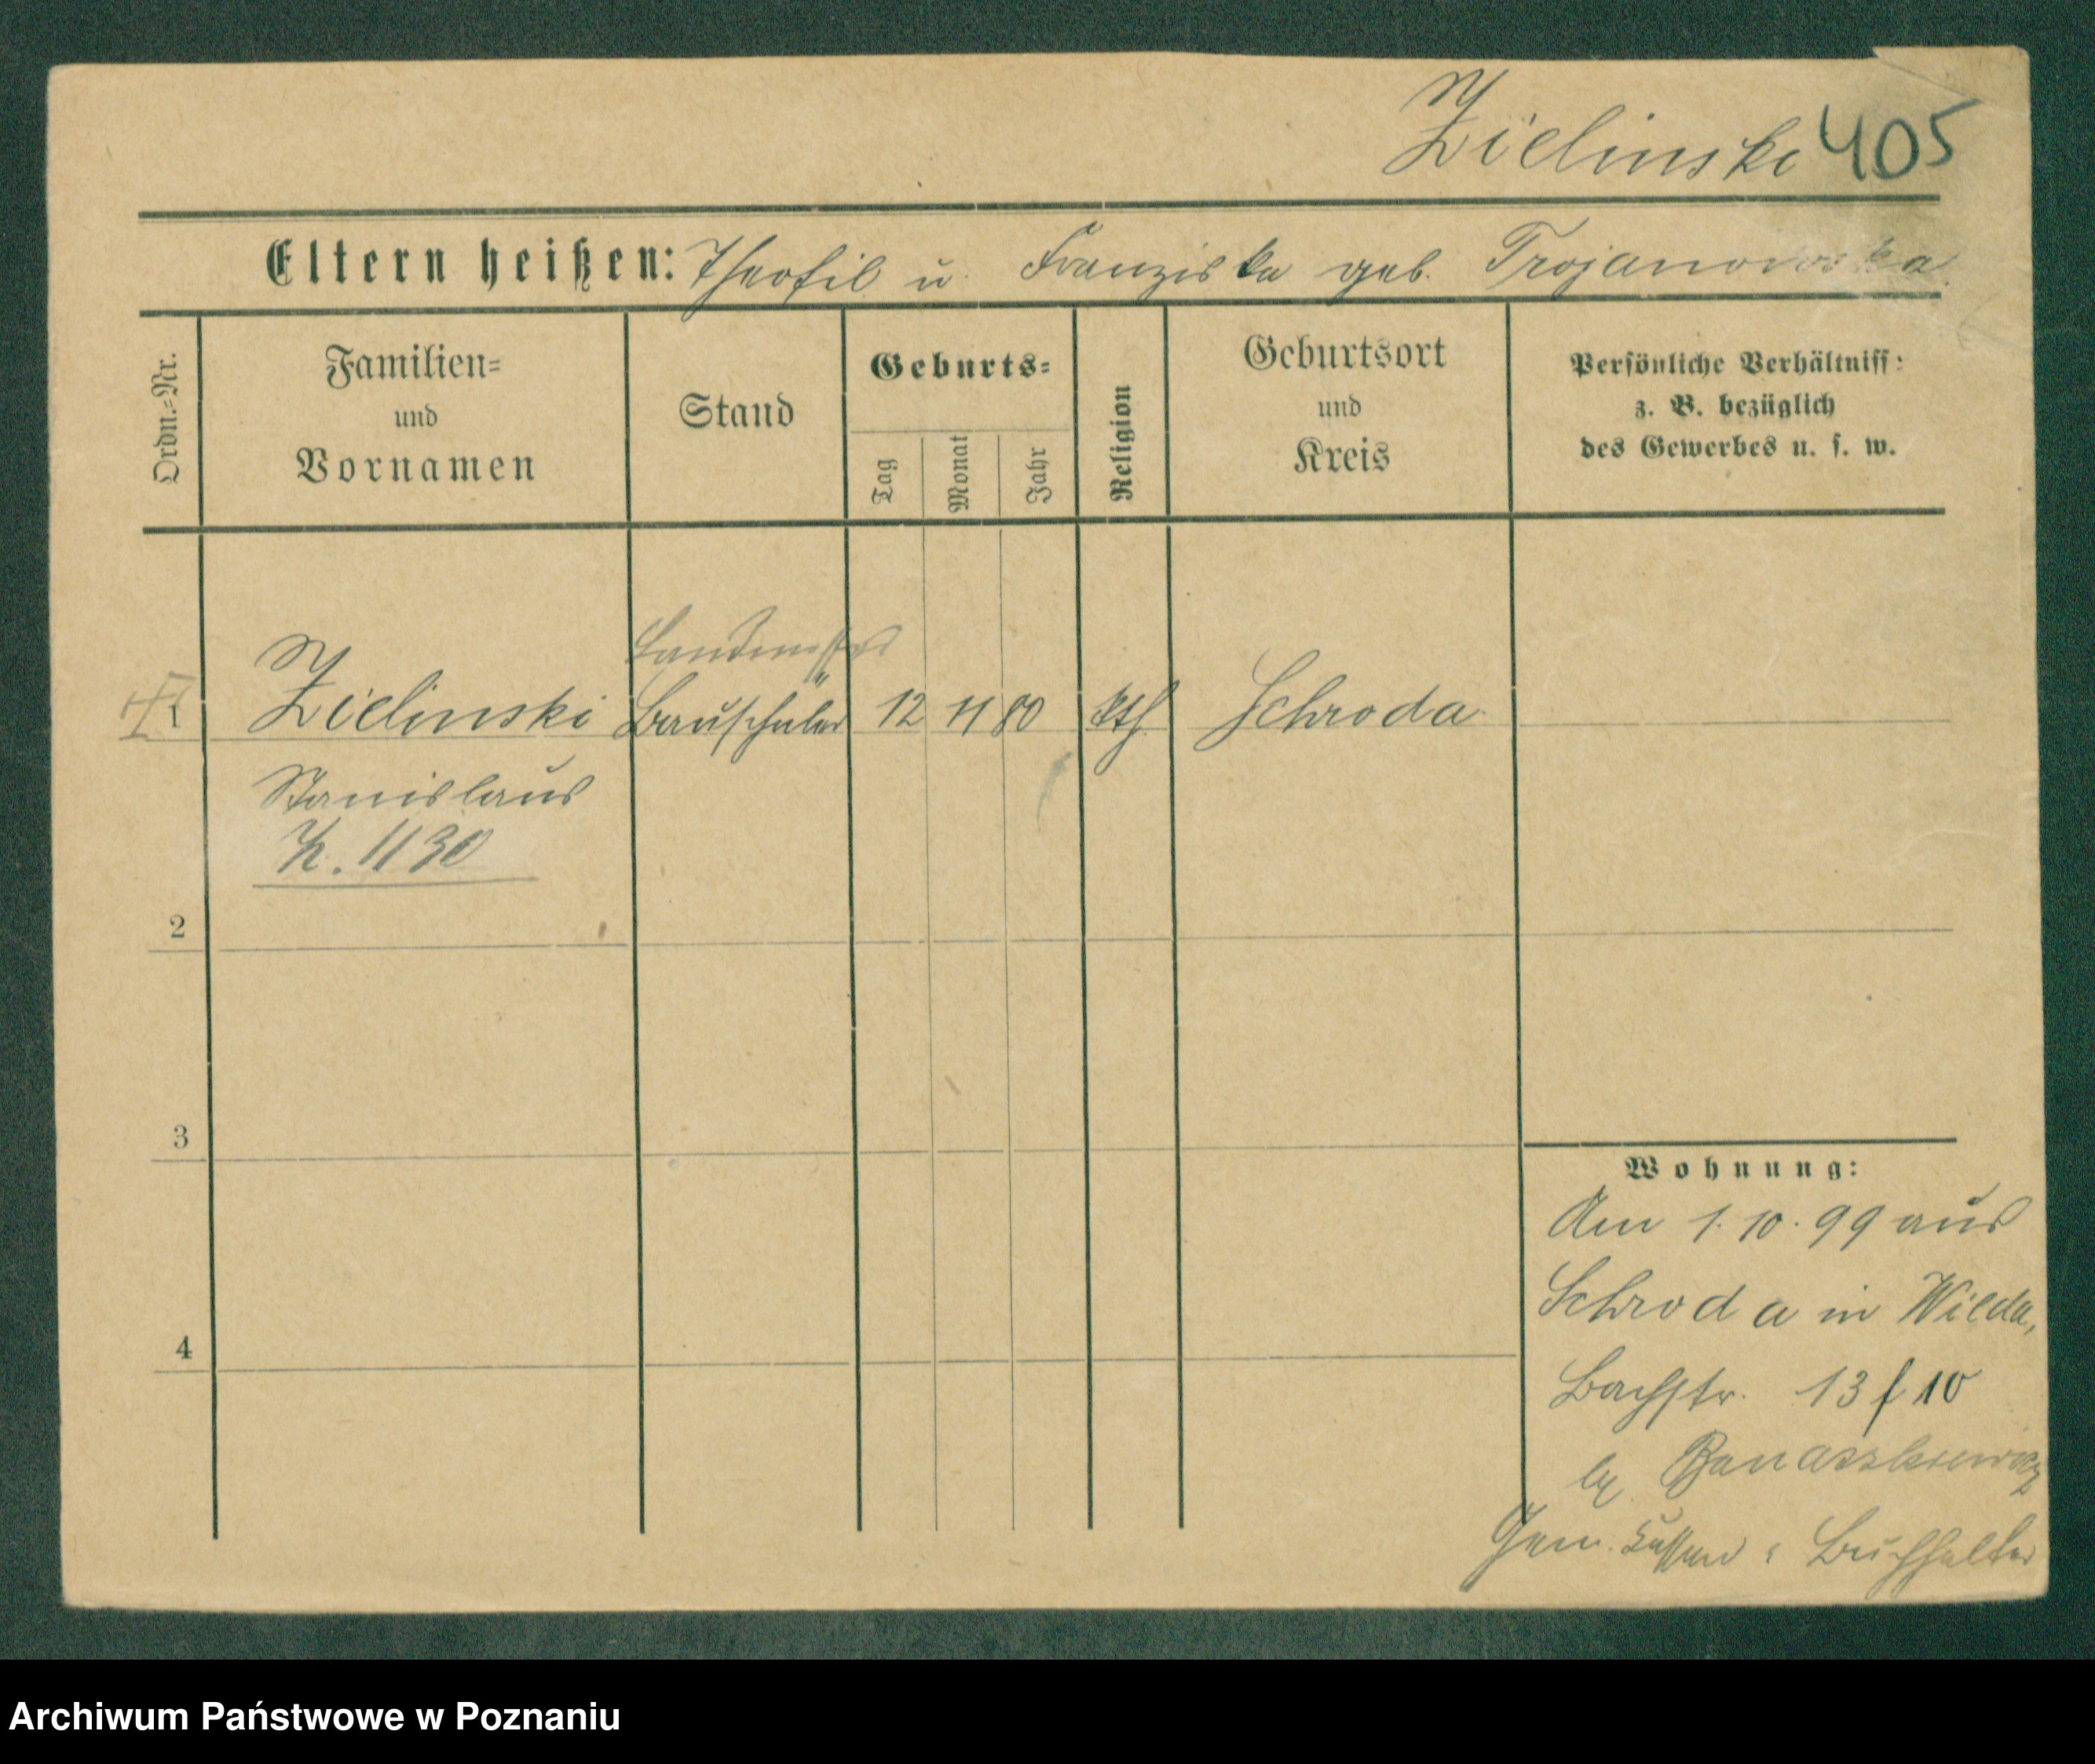 Zielinski 405
Eltern heißen: Theofil u. Franziska geb. Trojanowska
Ordn.=Nr.
Familien=
und
Vornamen
Stand
Geburts=
Tag
Monat
Jahr
Religion
Geburtsort
und
Kreis
Persönliche Verhältniss:
z. B. bezüglich
des Gewerbes u. s. w.
1 Zielinski Bauschüler 12 11 80 kth Schroda
Stanislaus
Z. 1130
2
3
4
Wohnung:
Am 1. 10. 99 aus
Schroda in Wilda,
Bachstr. 13 f 10
Banaszkiewicz
Buchhalter
Archiwum Państwowe w Poznaniu